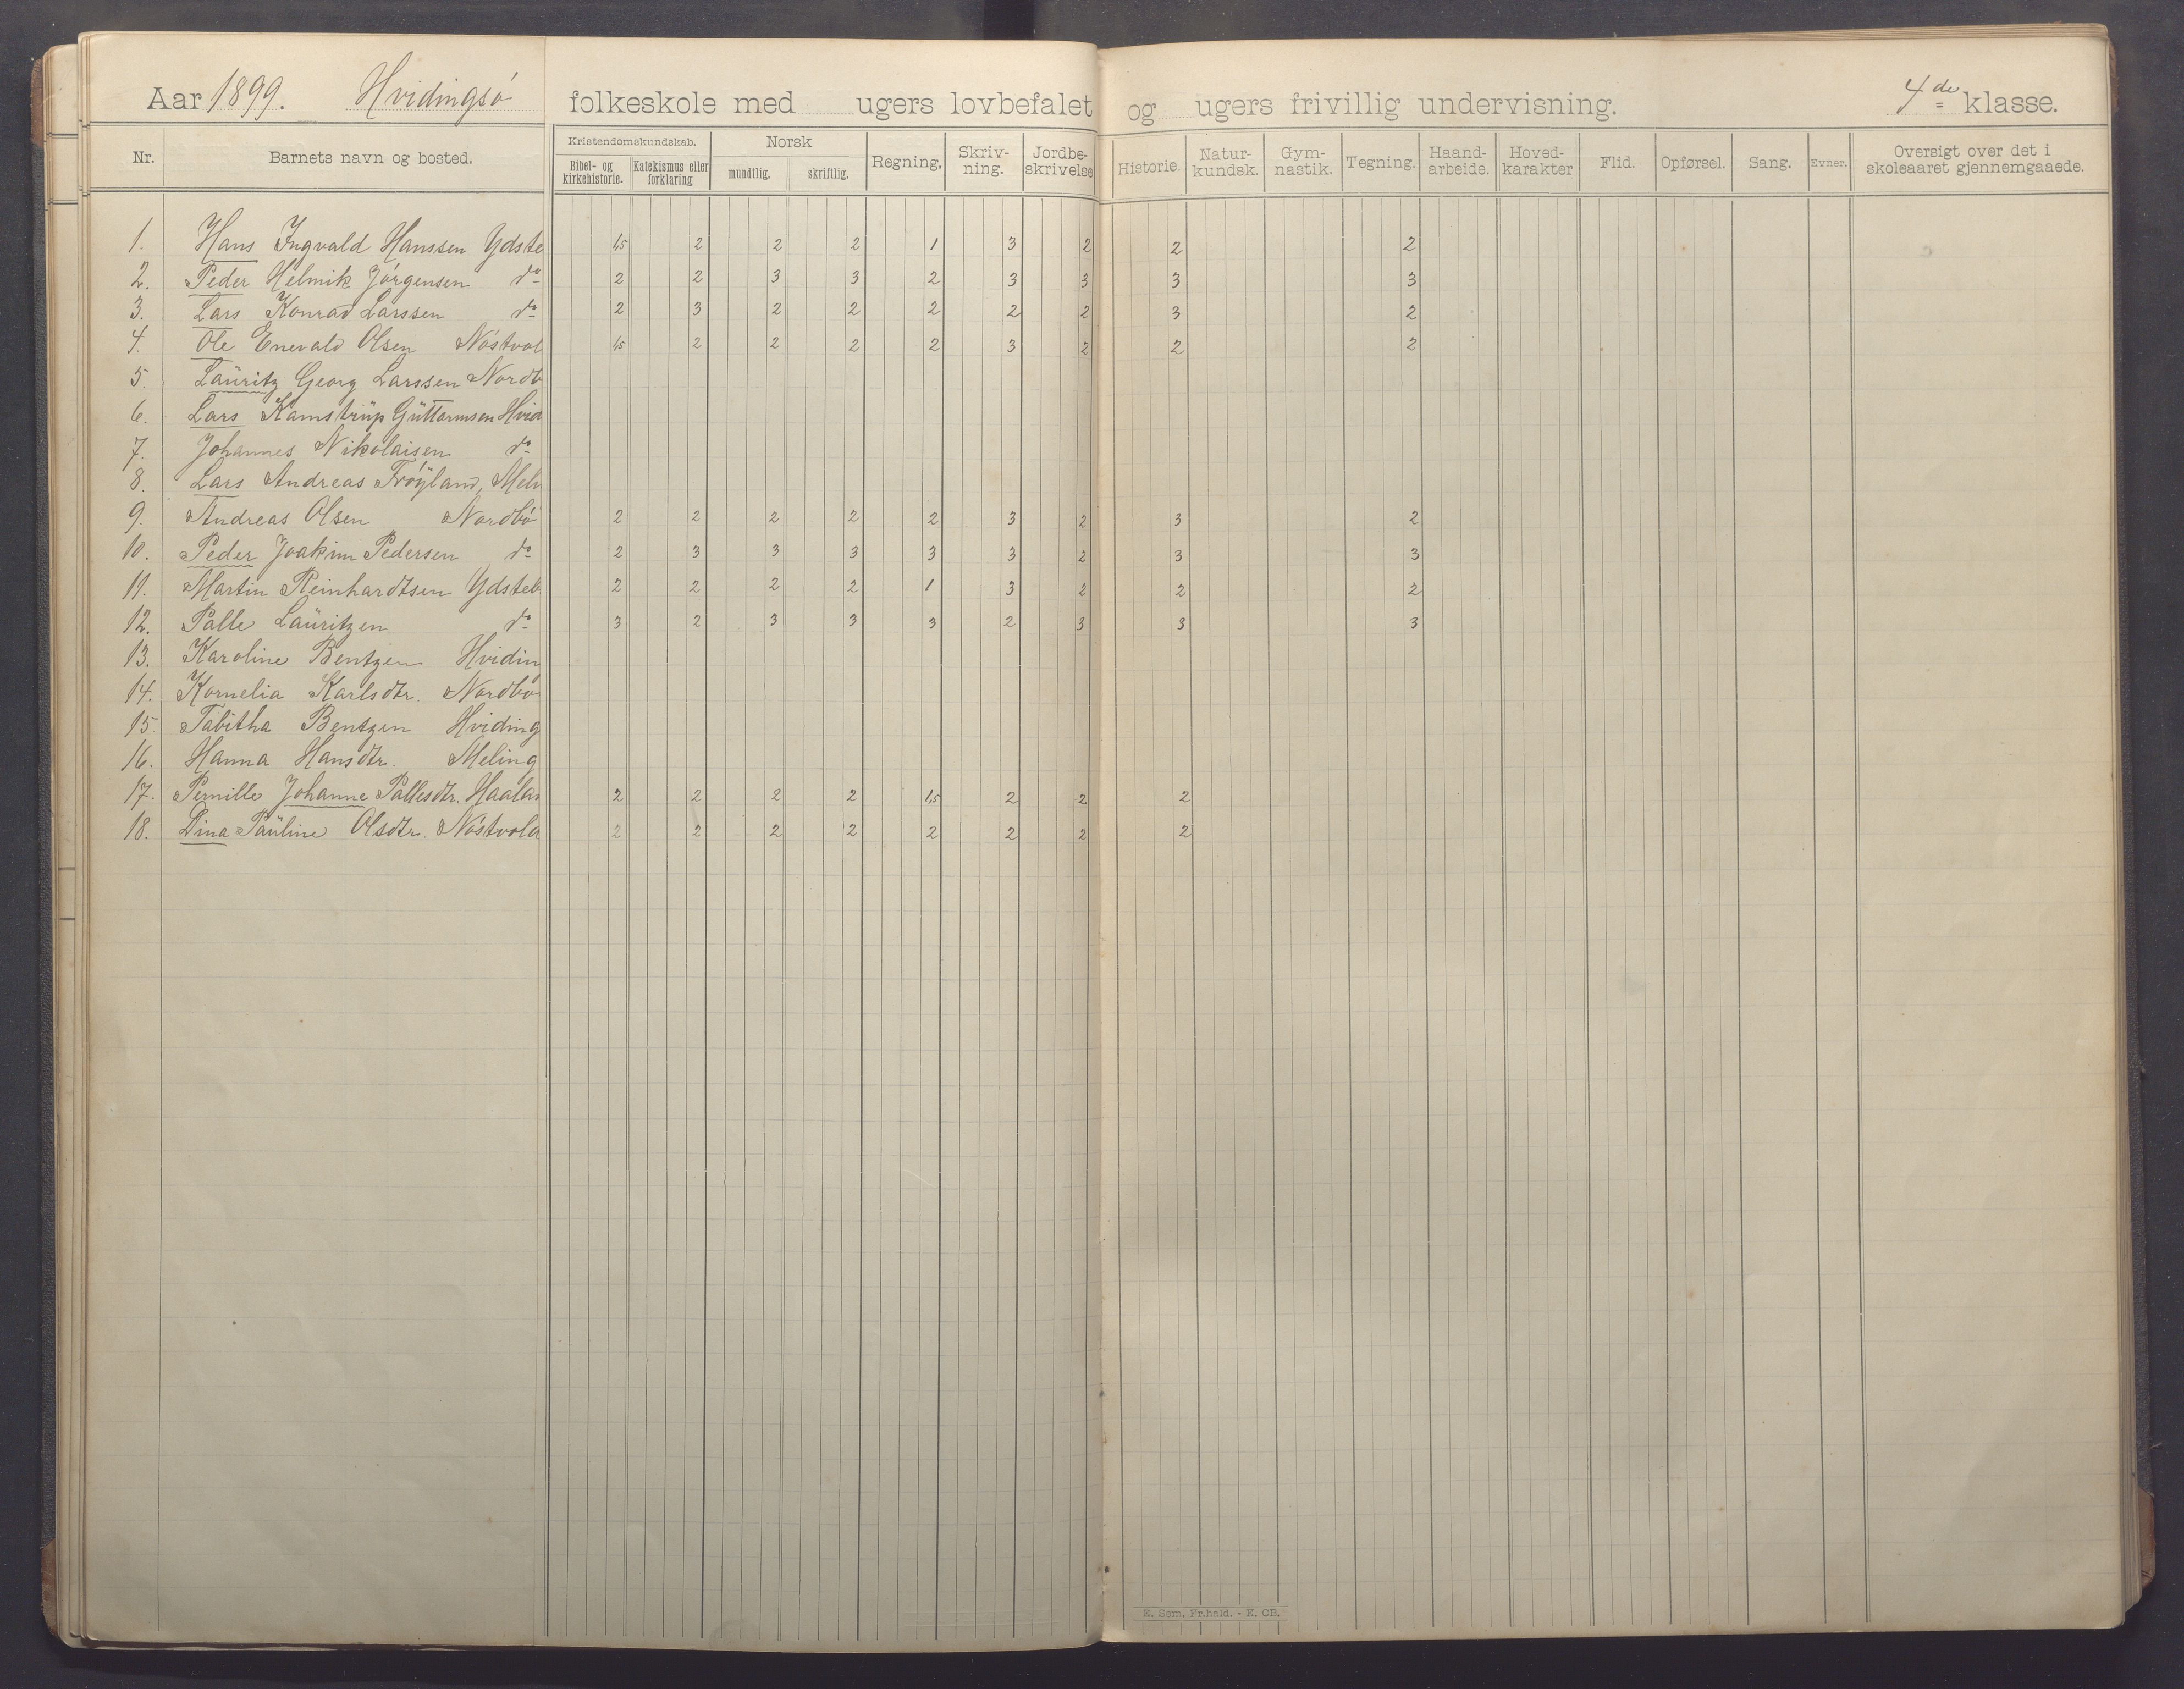 Aar 1899. Hvidingsó folkeskole med ugers lovbefalet og ugers frivillig undervisning. 4de klasse.
Nr. Barnets navn og bosted. Kristendomskundskab. Bibel- og kirkehistorie. Katekismus eller forklaring Norsk mundtlig. skriftlig. Regning. Skriv-ning. Jordbe-skrivelse Historie. Natur-kundsk. Gym-nastik. Tegning. Haand-arbeide. Hoved-karakter Flid. Opførsel. Sang. Evner. Oversigt over det i skoleaaret gjennemgaaede.
1. Hans Ingvald Hanssen Ydste 1,5 2 2 2 1 3 2 2 2
2. Peder Helmik Jórgensen do 2 2 3 3 2 3 3 3 3
3. Lars Konrad Larssen do 2 3 2 2 2 2 2 3 2
4. Ole Enevald Olsen Nóstvol 1,5 2 2 2 2 3 2 2 2
5. Lauritz Georg Larssen Nordb
6. Lars Kamstrup Guttormsen Hvid
7. Johannes Nikolaisen do
8. Lars Andreas Fróyland, Meln
9. Andreas Olsen Nordbó 2 2 2 2 2 3 2 3 2
10. Peder Joakim Pedersen do 2 3 3 3 3 3 2 3 3
11. Martin Reinhardtsen Ydsteb 2 2 2 2 1 3 2 2 2
12. Palle Lauritzen do 3 2 3 3 3 2 3 3 3
13. Karoline Bentzen Hvidin
14. Kornelia Karlsdtr. Nordbo
15. Tabitha Bentzen Hviding
16. Hanna Hansdtr. Meling
17. Pernille Johanne Pallesdtr. Haalan 2 2 2 2 1,5 2 2 2
18. Dina Pauline Olsdtr. Nóstvold 2 2 2 2 2 2 2 2
E. Sem, Fr.hald. - E. CB.